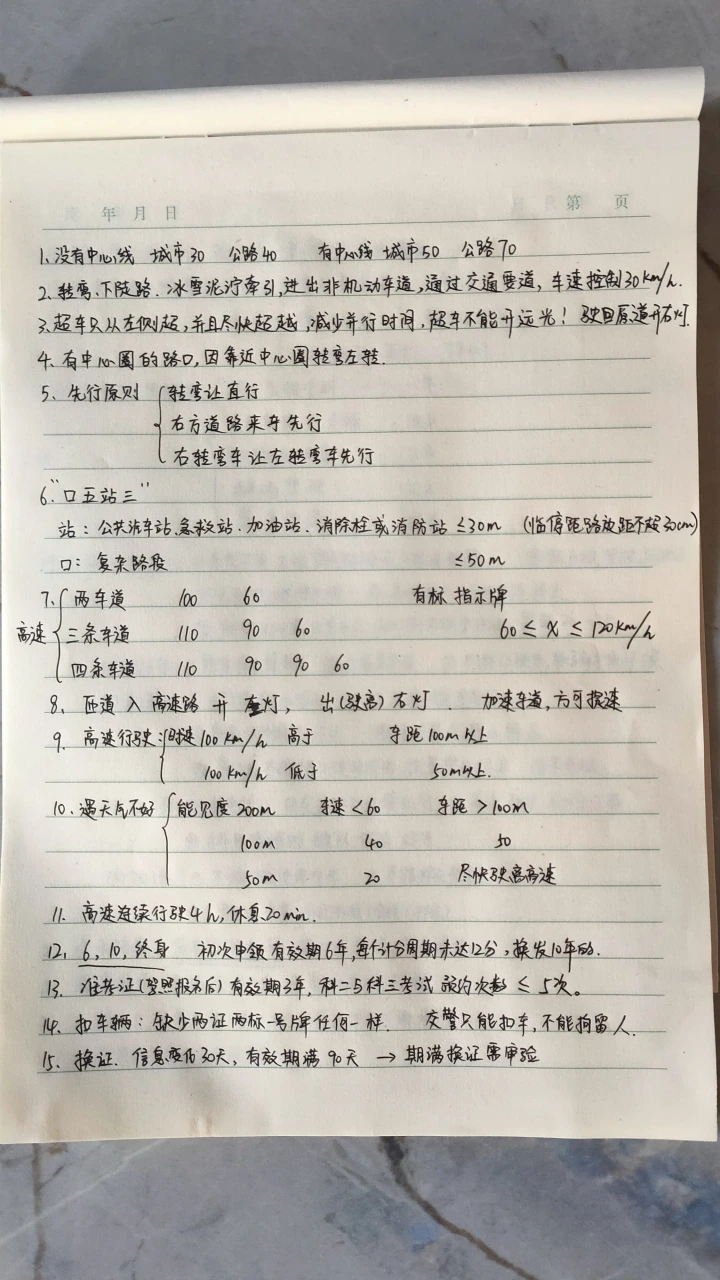 年 月 日 第 页
1、没有中心线 城市30 公路40 有中心线 城市50 公路70
2、转弯、下陡路、冰雪泥泞牵引,进出非机动车道,通过交通要道,车速控制30km/h.
3、超车只从左侧超,并且尽快超越,减少并行时间,超车不能开远光! 驶回原道开右灯.
4、有中心圈的路口,因靠近中心圈转弯左转.
5、先行原则 转弯让直行
右方道路来车先行
右转弯车让左转弯车先行
6."口五站三"
站:公共汽车站.急救站.加油站.消除栓或消防站 ≤30m (临停距路边距不超30cm)
口:复杂路段 ≤50m
7、两车道 100 60 有标 指示牌
高速 三条车道 110 90 60 60≤x≤120km/h
四条车道 110 90 90 60
8、匝道入高速路开左灯, 出(驶离)右灯. 加速车道,方可提速
9、高速行驶:时速100km/h 高于 车距100m以上
100km/h 低于 50m以上.
10、遇天气不好 能见度200m 车速<60 车距>100m
100m 40 50
50m 20 尽快驶离高速
11、高速连续行驶4h,休息20min.
12、6,10,终身 初次申领有效期6年,每个计分周期未达12分,换发10年的.
13、准考证(驾照报名后)有效期3年,科二与科三考试 预约次数≤5次。
14、扣车辆:缺少两证两标一号牌任何一样. 交警只能扣车,不能拘留人.
15、换证. 信息变化30天,有效期满90天 →期满换证需审验